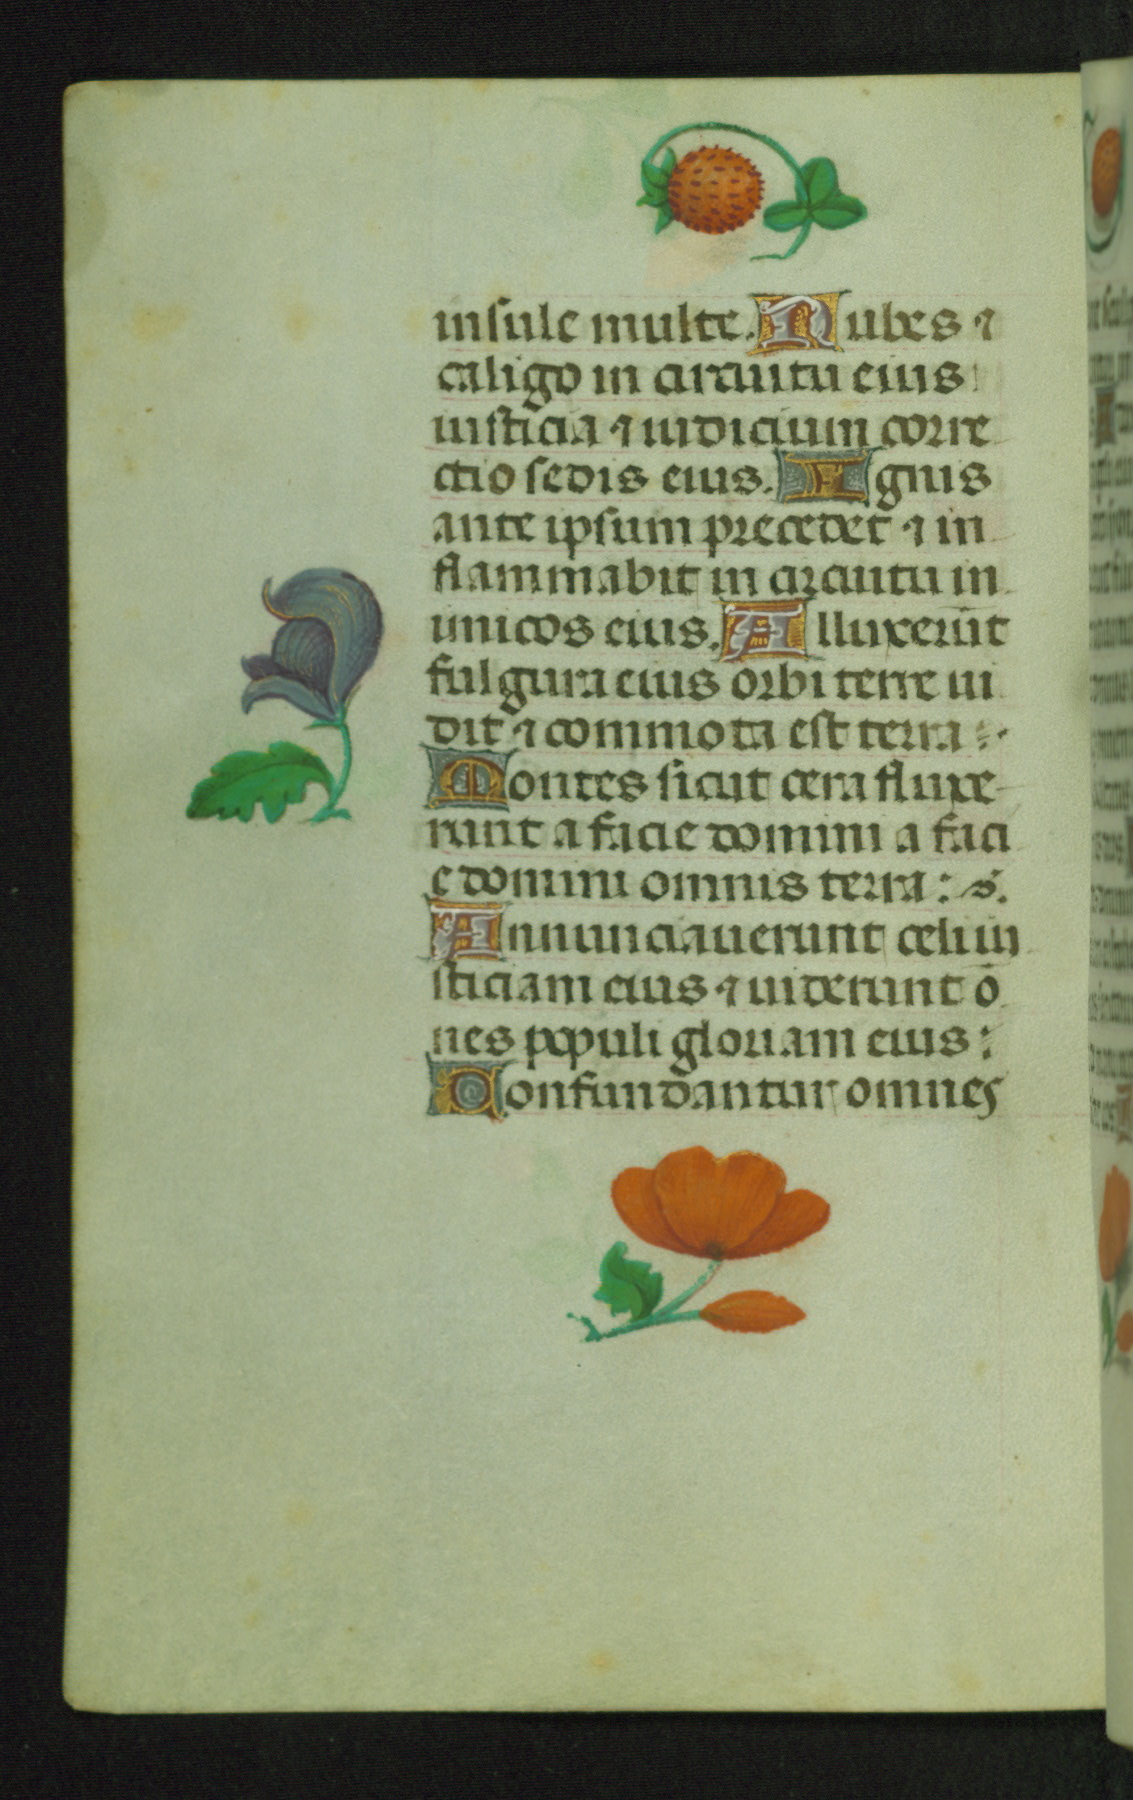 insule multe. Nubes ⁊
caligo in circuitu eius
iusticia ⁊ iudicium corre
ctio sedis eius. Ignis
ante ipsum precedet ⁊ in
flammabit in circuitu in
imicos eius. Alluxerūt
fulgura eius orbi terre ui
dit ⁊ commota est terra :
Montes sicut cera fluxe-
runt a facie domini a faci
e domini omnis terra : s.
Annunciauerunt celi iu
sticiam eius ⁊ uiderunt ō
nes populi gloriam eius :
Confundantur omnes